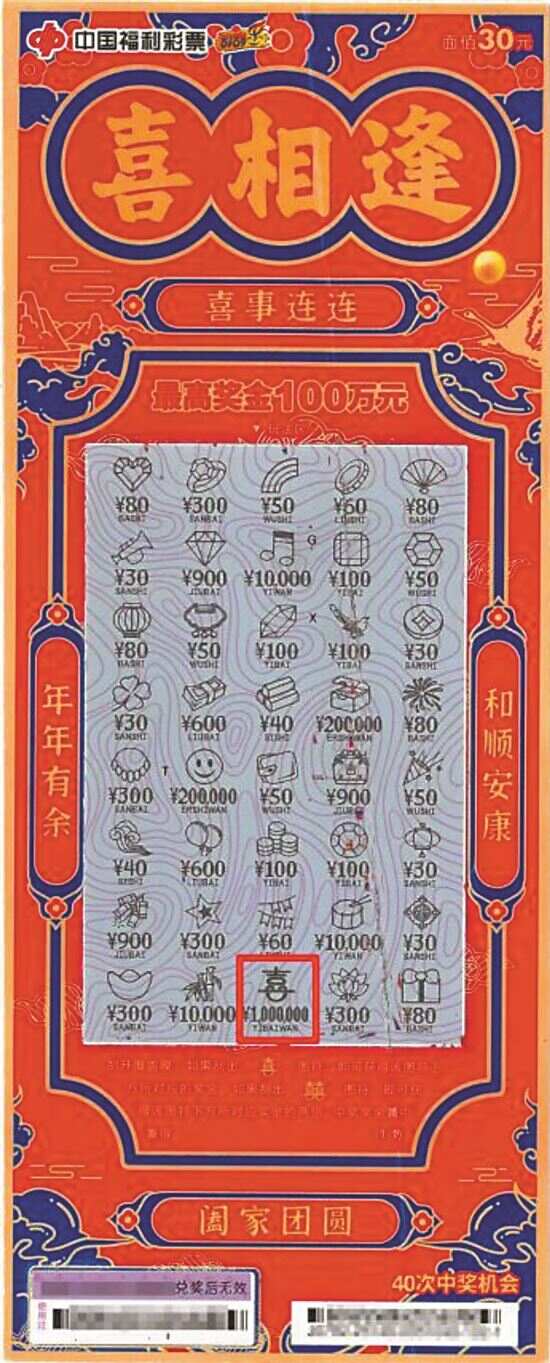 中国福利彩票 刮刮乐
面值30元
喜相逢
喜事连连
最高奖金100万元
¥80 ¥300 ¥50 ¥60 ¥80
BASHI SANBAI WUSHI LIUSHI BASHI
¥30 ¥900 ¥10,000 G ¥100 ¥50
SANSHI JIUBAI YIWAN YIBAI WUSHI
¥80 ¥50 ¥100 X ¥100 ¥30
BASHI WUSHI YIBAI YIBAI SANSHI
¥30 ¥600 ¥40 ¥200,000 ¥80
SANSHI LIUBAI SISHI ERSHIWAN BASHI
¥300 T ¥200,000 ¥50 ¥900 ¥50
SANBAI ERSHIWAN WUSHI JIUBAI WUSHI
¥40 ¥600 ¥100 ¥100 ¥30
SISHI LIUBAI YIBAI YIBAI SANSHI
¥900 ¥300 ¥60 ¥10,000 ¥30
JIUBAI SANBAI LIUSHI YIWAN SANSHI
喜
¥300 ¥10,000 ¥1,000,000 ¥300 ¥80
SANBAI YIWAN YIBAIWAN SANBAI BASHI
年年有余
和顺安康
刮开覆盖膜,如果刮出 喜
如果刮出 囍
阖家团圆
兑奖后无效
40次中奖机会